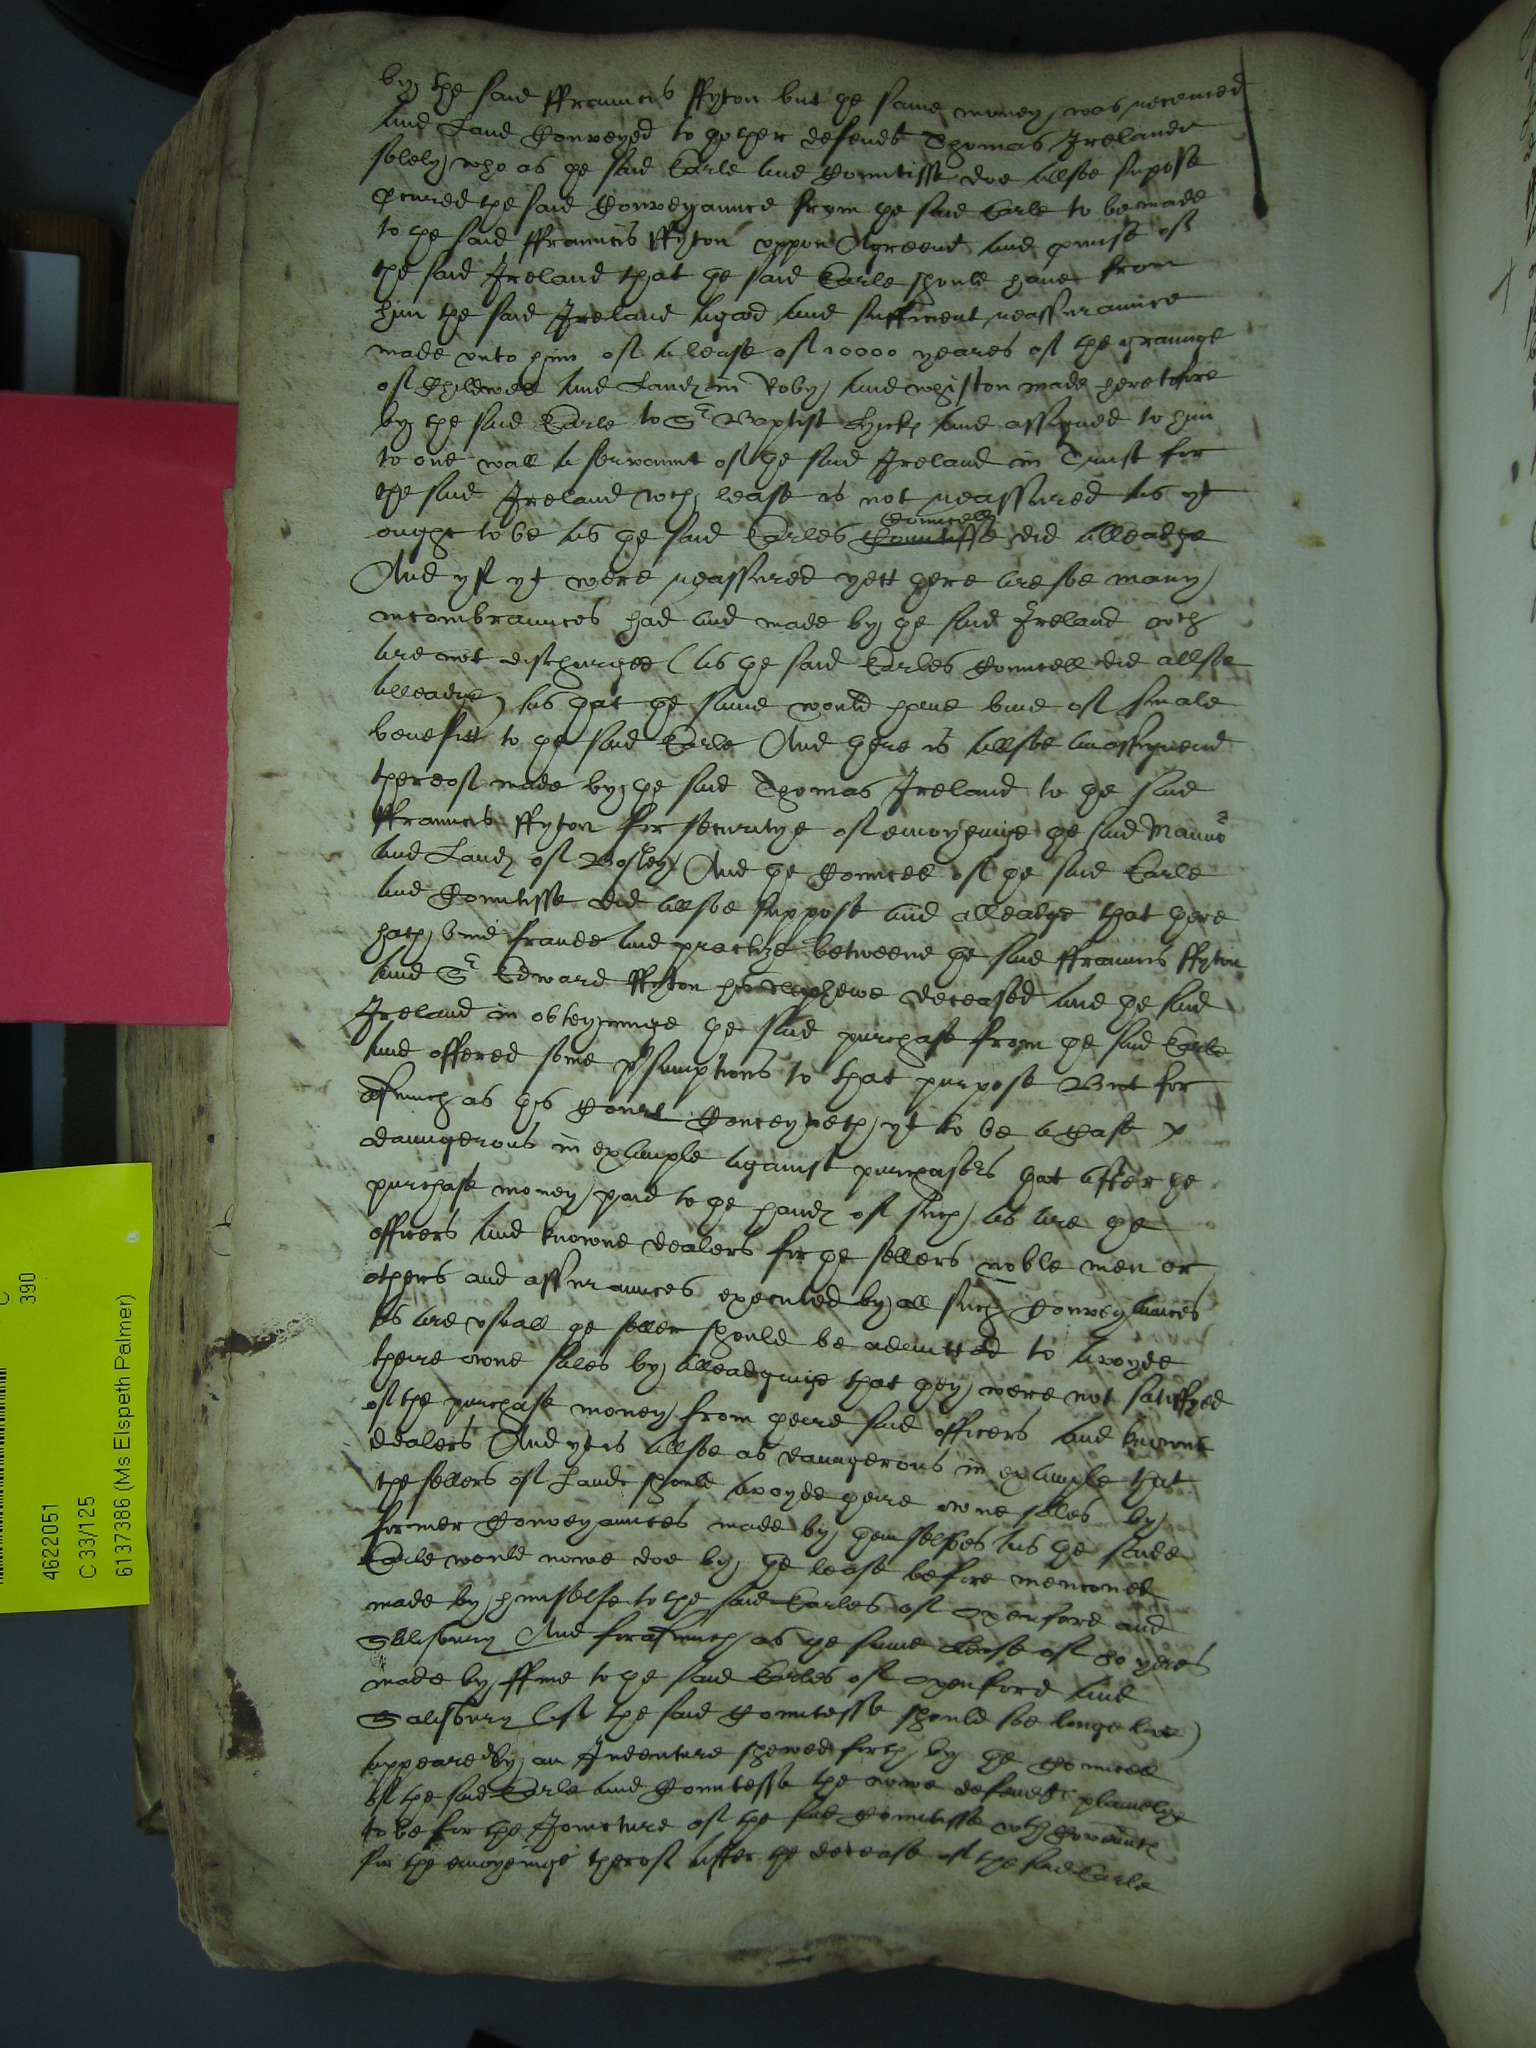 by the said ffrauncis ffyton but ye same money was receaued
and Land Conveyed to ye other defendt Thomas Ireland
solely who as ye said Earle and Countisse doe allsoe supose
procured the said Conveyaunce from ye said Earle to be made
to ye said ffrauncis ffyton vppon Agreemt and promise of
the said Ireland that ye said Earle should haue from
him the said Ireland a good and sufficient reassuraunce
made vnto him of a lease of 10000 yeares of the graunge
of Childwell and Landes in Roby and whiston made heretofore
by the said Earle to Sr Baptist Hickes and assigned to him
to one wall a servaunt of ye said Ireland in Trust for
the said Ireland wch lease is not reassured as yt
ought to be as ye said Earles Countisse Councell did alleadge
And yf yt were reassured yett there are soe many
incombraunces had and made by ye said Ireland wch
are not discharged (as ye said Earles Councell did allsoe
alleadge) as that ye same would haue bine of smale
benefitt to ye said Earle And there is allsoe an assignemt
thereof made by ye said Thomas Ireland to ye said
ffrauncis ffyton for securitye of enioyeinge ye said Mannor
and Landes of Bosley And ye Councell of ye said Earle
and Countisse did allsoe suppose and alleadge that there
hath bine fraude and practize betweene ye said ffrauncis ffyton
and Sr Edward ffyton his Nephewe deceased and ye said
Ireland in obteyninge ye said purchase from ye said Earle
and offered some presumptions to that purpose But for
asmuch as this Court Conceyveth yt to be a Case
daungerous in example against purchasers that after the
purchase money paid to ye handes of such as are ye
officers and knowne dealers for ye sellers noble men or
others and assuraunces executed by all such Conveyaunces
as are vsuall ye seller should be admitted to avoyde
theire owne sales by alleadginge that they were not satisfyed
of the purchase money from theire said officers and knowne
dealers And yt is allsoe as daungerous in example that
the sellers of Lands should avoyde theire owne sales by
former Conveyaunces made by themselfes as ye saide
Earle would nowe doe by ye lease before menconed
made by himselfe to the said Earles of Oxenford and
Salisbury And forasmuch as ye same Lease of 80 yeres
made by ffine to ye said Earles of Oxenford and
Salisbury (if the said Countesse should soe longe live)
appeared by an Indenture shewed forth by ye Councell
of the said Earle and Countesse the nowe defendts plainelye
to be for the Joincture of the said Countisse wth Covenants
for the enioyeinge therof after the decease of the said Earle
390
4622051
C 33/125
6137386 (Ms Elspeth Palmer)